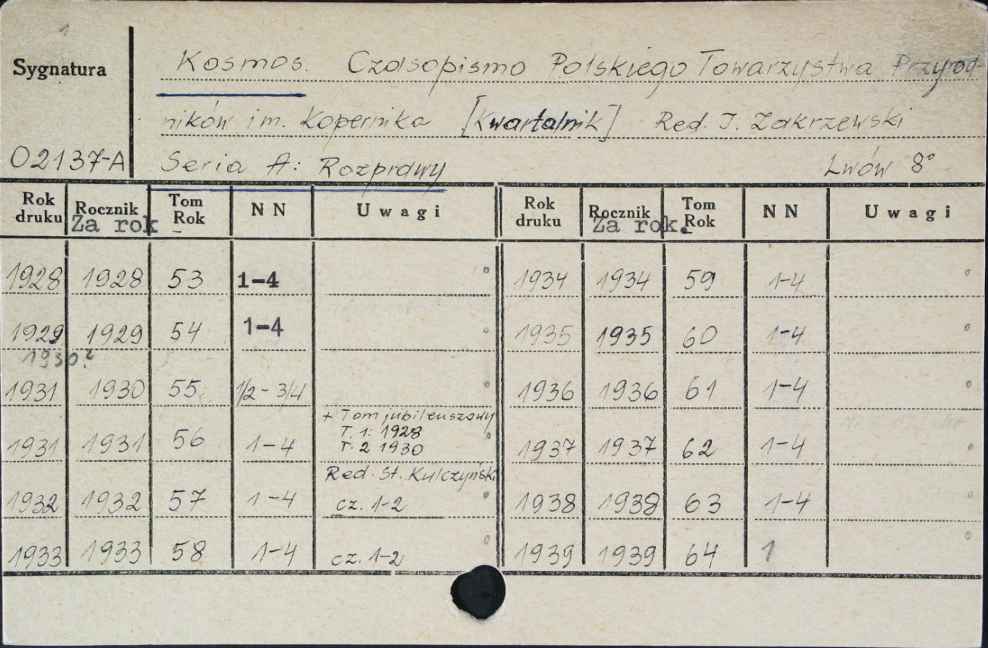 Sygnatura
Kosmos. Czasopismo Polskiego Towarzystwa Przyrod-
ników im. Kopernika [Kwartalnik] Red. J. Zakrzewski
02137-A Seria A: Rozprawy Lwów 8°
Rok druku Rocznik Za rok Tom Rok NN Uwagi Rok druku Rocznik Za rok. Tom Rok NN Uwagi
1928 1928 53 1-4 1934 1934 59 1-4
1929 1929 54 1-4 1935 1935 60 1-4
1930?
1931 1930 55 1/2-3/4 1936 1936 61 1-4
+ Tom jubileuszowy
T. 1: 1928
1931 1931 56 1-4 T. 2 1930 1937 1937 62 1-4
Red. St. Kulczyński
1932 1932 57 1-4 cz. 1-2 1938 1938 63 1-4
1933 1933 58 1-4 cz. 1-2 1939 1939 64 1